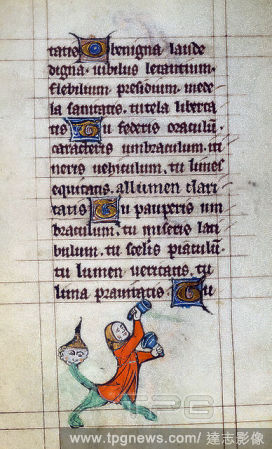 tatis O benigna laude
digna. uibilus letantium.
flebilium presidium. mede
la sanitatis. tutela liberta
tis Tu federis oraculū.
caracteris umbraculum. tu
neris uehiculum. tu lumen
equitatis. allumen clari
tatis Tu pauperis um
braculum. tu miseris lati
bulum. tu scelis piaculū.
tu lumen ueritatis. tu
lima prauitatis Tu
TPG
www.tpgnews.com/達志影像